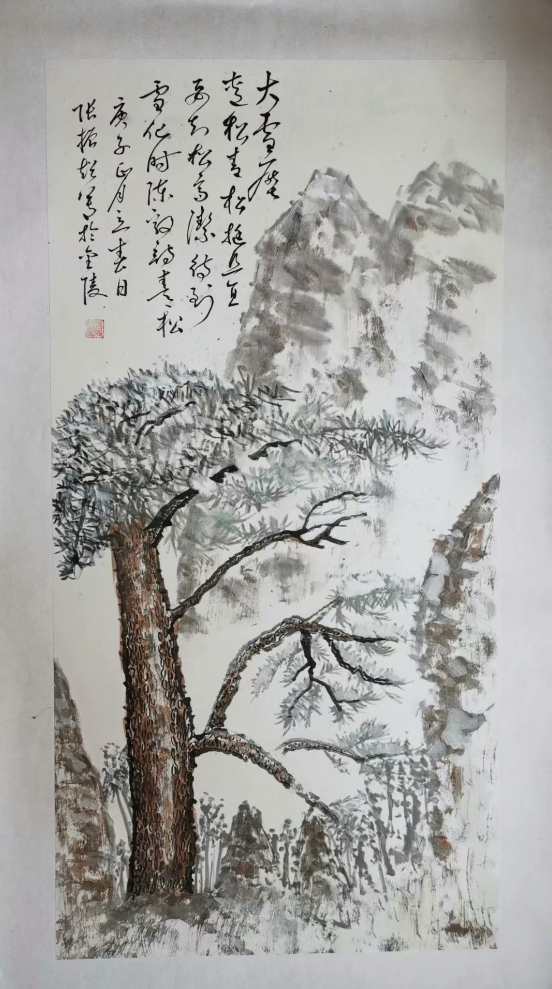 大雪压
青松青松挺且直
要知松高潔待到
雪化时陈毅诗青松
庚子正月立春日
张振 写於金陵